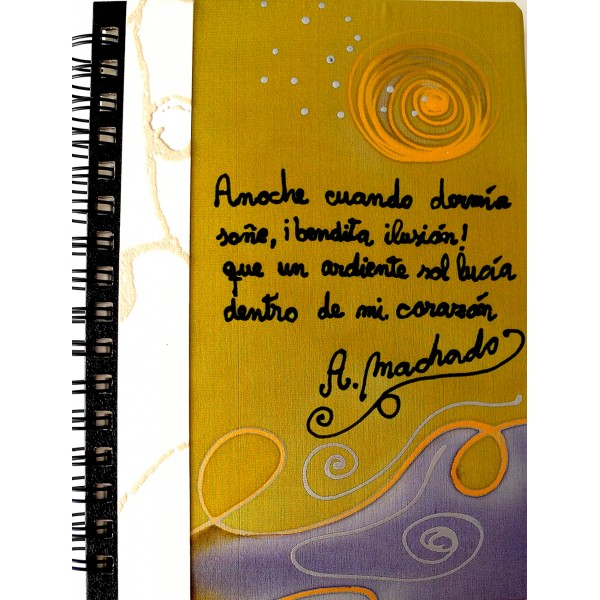 Anoche cuando dormía
soñe, ¡bendita ilusión!
que un ardiente sol lucía
dentro de mi corazón
A. Machado